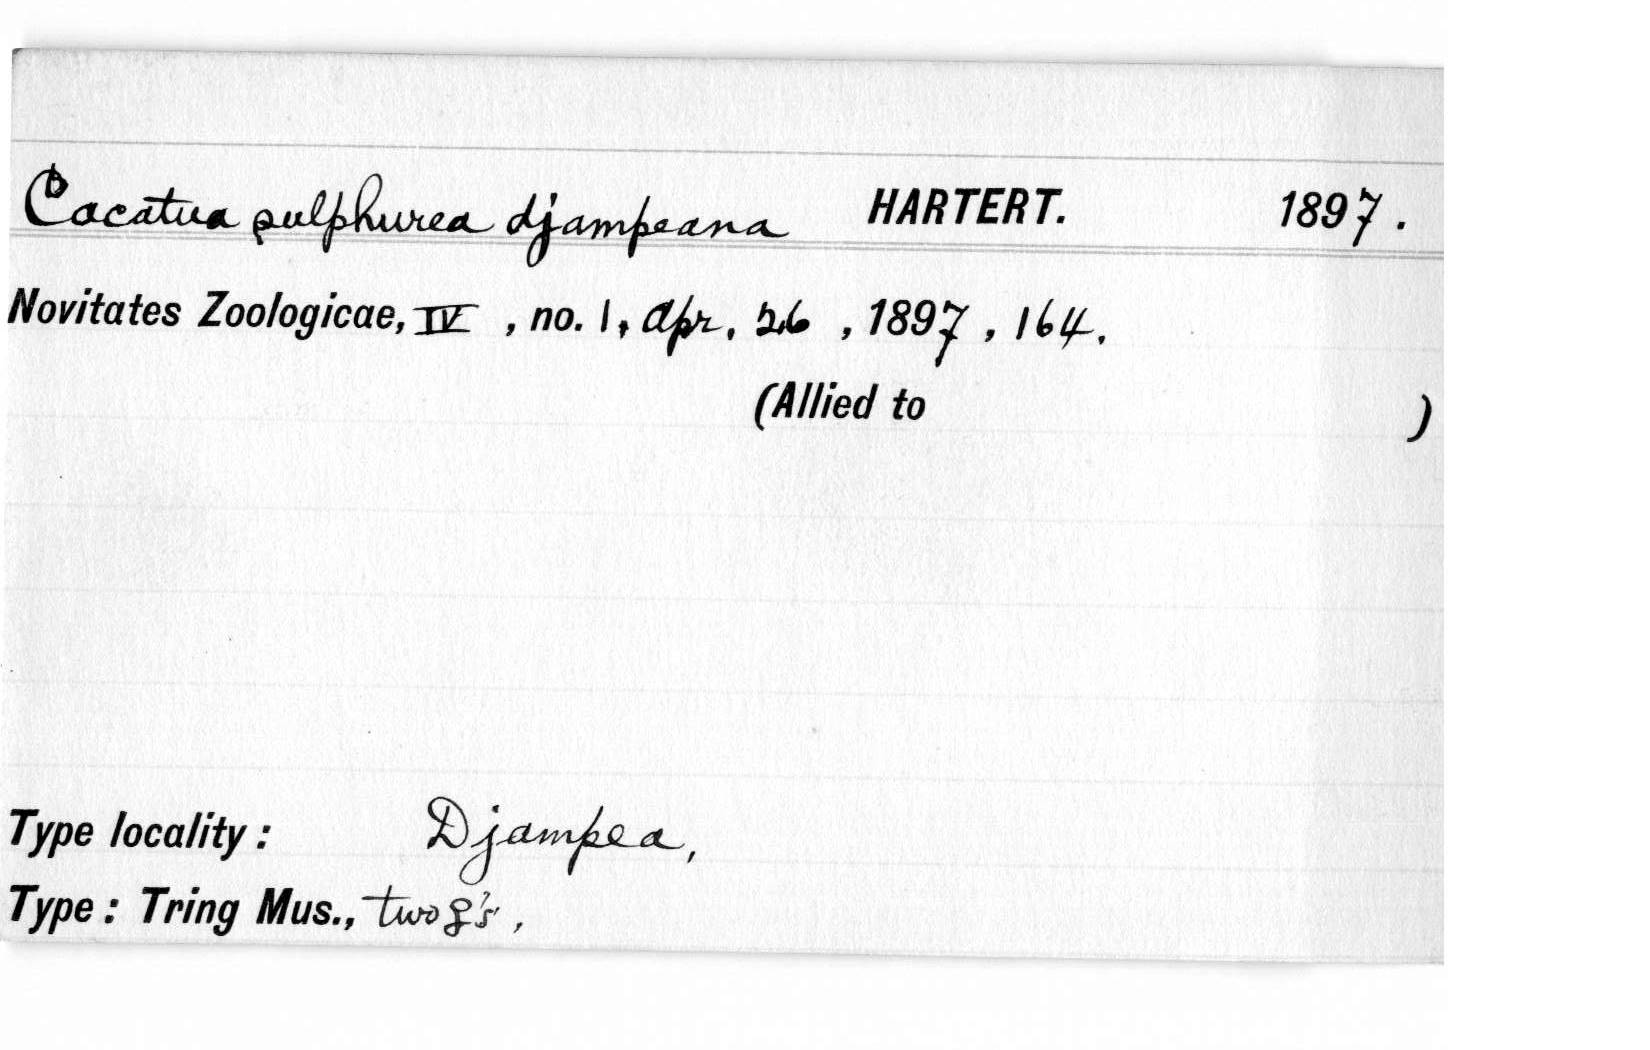 Cacatua sulphurea djampeana HARTERT. 1897.
Novitates Zoologicae, IV, no. 1, Apr. 26, 1897, 164.
(Allied to )
Type locality: Djampea,
Type: Tring Mus., two ♀'s,